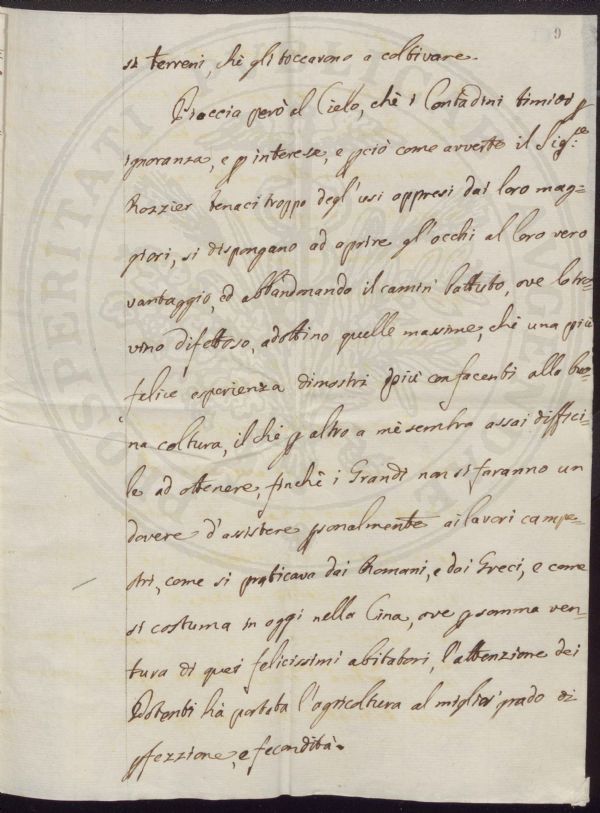 9
si terreni, chè gli toccarono a coltivare.
Piaccia però al Cielo, chè i Contadini timidi p
ignoranza, e p interesse, e pciò come avverte il Sig.re
Rozzier tenaci troppo degl'usi appresi dai loro mag=
giori, si dispongano ad aprire gl'occhi al loro vero
vantaggio, ed abbandonando il camin battuto, ove lo tro=
vino difettoso, adottino quelle massime, chè una più
felice esperienza dimostri più confacenti alla buo=
na coltura, il chè p altro a mè sembra assai diffici=
le ad ottenere, finchè i Grandi non si faranno un
dovere d'assistere psonalmente ai lavori campe=
stri, come si praticava dai Romani, e dai Greci, e come
si costuma in oggi nella Cina, ove p somma ven=
tura di quei felicissimi abitatori, l'attenzione dei
Potenti hà portata l'agricoltura al miglior grado di
pfezzione, e fecondità.
PROSPERITATI PUBLICAE AUGENDAE